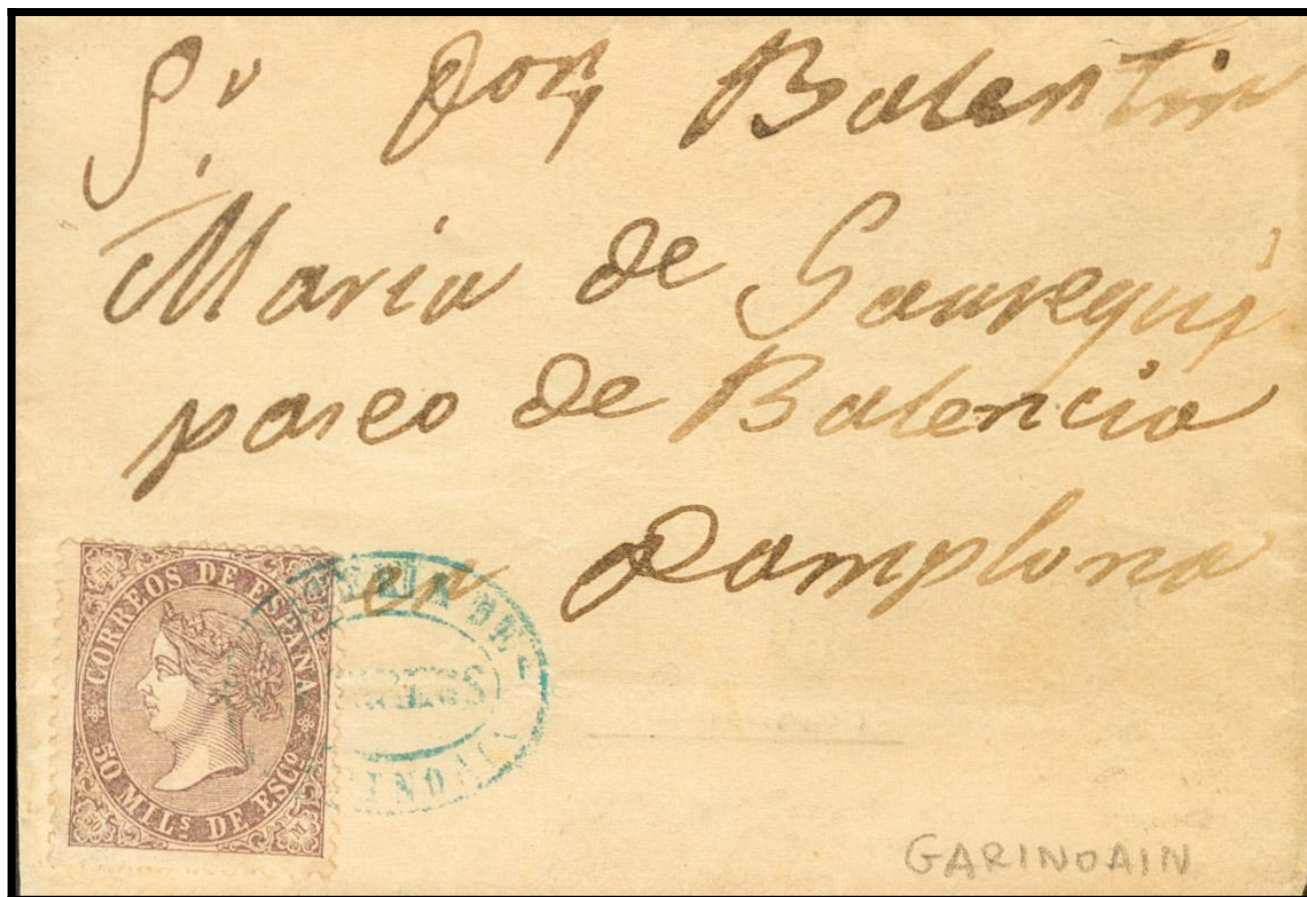 Sr. Don Balentin
Maria de Gaureguy
paseo de Balencia
en Pamplona
CORREOS DE ESPAÑA
50 MILS DE ESCO
DE
CORREOS
GARINOAIN